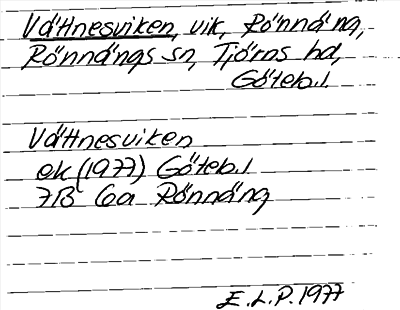 Vättnesviken, vik, Rönnäng,
Rönnängs sn, Tjörns hd,
Göteb.l.
Vättnesviken
ek (1977) Göteb.l
7B 6a Rönnäng
E.L.P. 1977